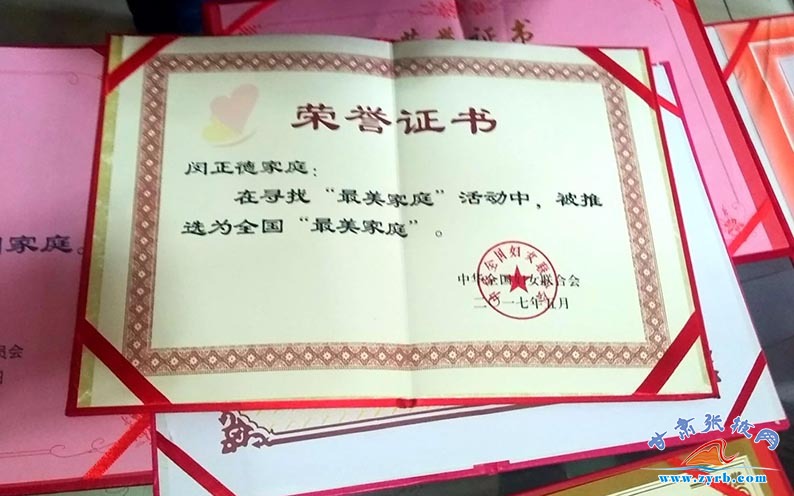 荣誉证书
荣誉证书
闵正德家庭：
在寻找“最美家庭”活动中，被推
选为全国“最美家庭”。
中华全国妇女联合会
二〇一七年五月
中华全国妇女联合会
家庭。
员会
甘肃张掖网
www.zyrb.com